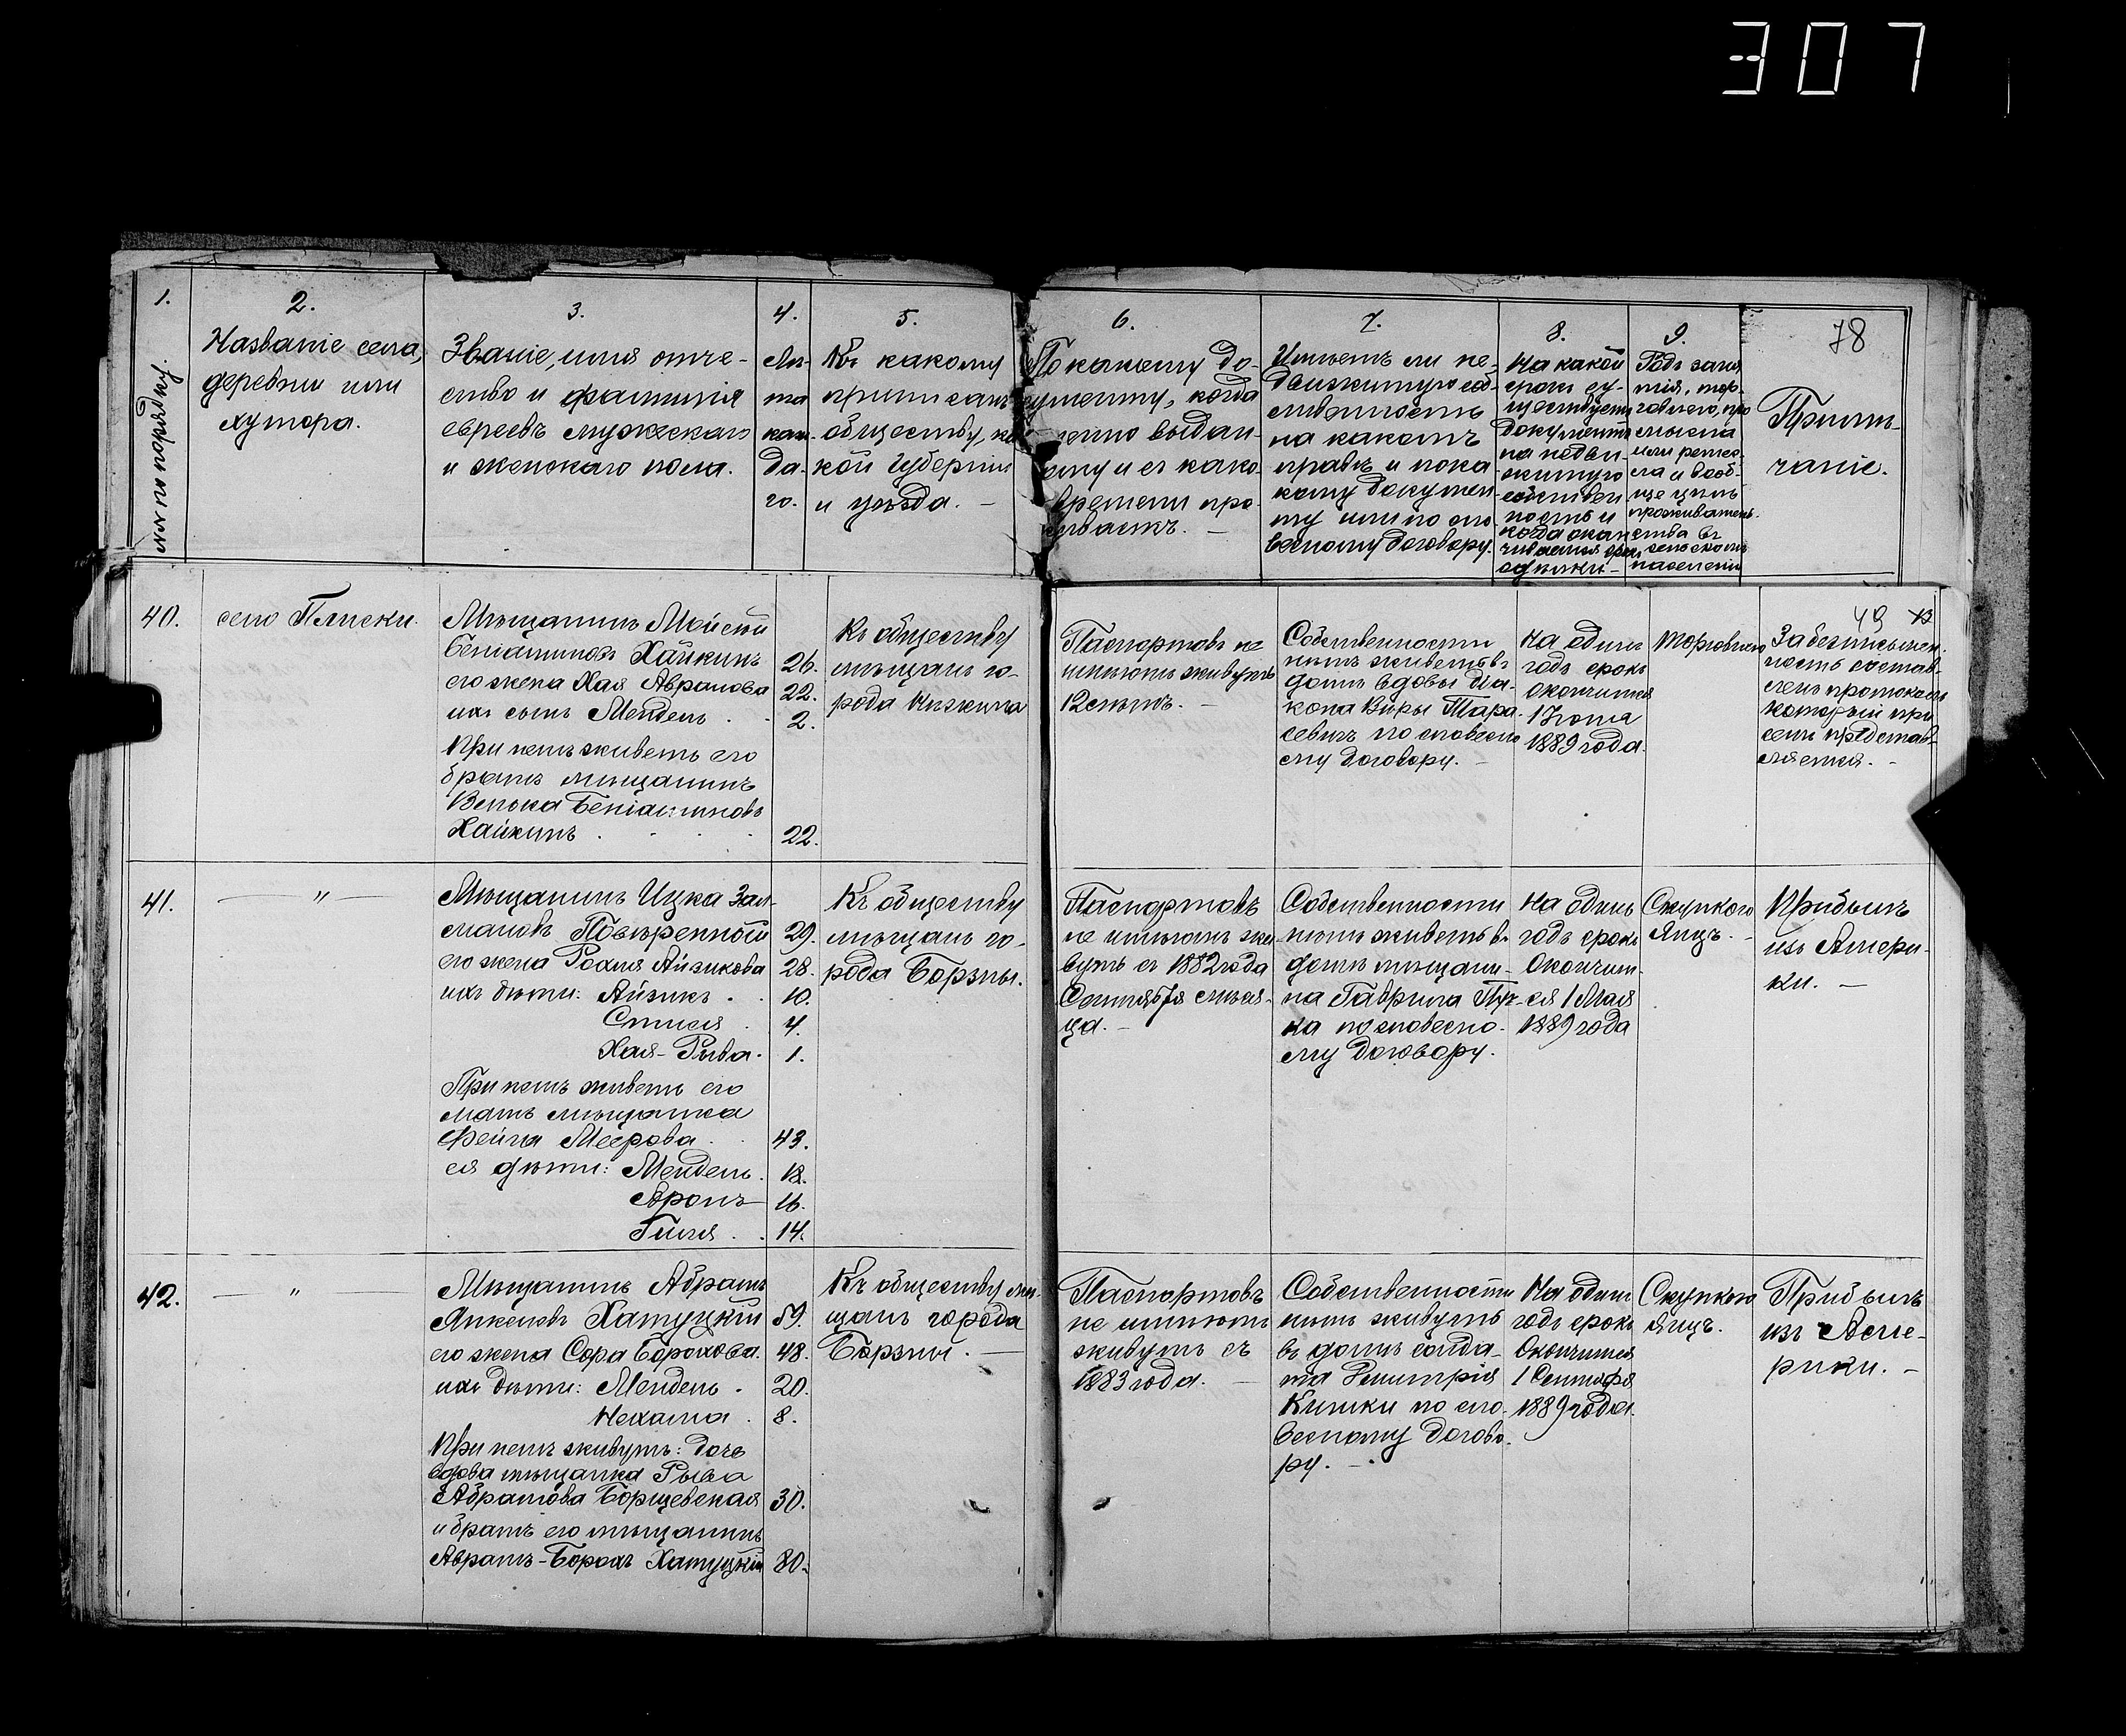 307
1.
№№ по порядку.
2.
Названіе села,
деревни или
хутора.
3.
Званіе, имя отче-
ство и фамилія
евреевъ мужескаго
и женскаго пола.
4.
Лѣ-
та
каж-
да-
го.
5.
Къ какому
приписанъ
обществу, ка
кой губерніи
и уѣзда. —
6.
По какому до-
кументу, когда
выдан-
ому и съ како
времени про
живаетъ. —
7.
Имѣетъ ли не-
движимую соб-
ственность
на какомъ
правѣ и пока
кому докумен
ту или по сло-
весному договору.
8.
На какой
срокъ су-
ществуетъ
документъ
на недви-
жимую
собствен
ность и
когда окан
чивается срок
сдѣлки —
9.
Родъ заня
тія, тор-
говлею, про
мысла
или ремес
ла и вооб-
ще цѣль
проживатель-
ства въ
сельскомъ
населеніи
78
Примѣ-
чаніе.
40.
село Плиски.
Мѣщанинъ Мойсей
Беніаминовъ Хайкинъ
26.
его жена Хая Авраамова
22.
ихъ сынъ Мендель . .
2.
При немъ живетъ его
братъ мѣщанинъ
Велька Беніаминовъ
Хайкинъ . . .
22.
Къ обществу
мѣщанъ го-
рода Нѣжина
Паспортовъ не
имѣютъ живутъ
12 лѣтъ. —
Собственности
нѣтъ живетъ въ
домѣ вдовы Дья-
кона Вѣры Тара-
севичъ по словесно
му договору. —
На одинъ
годъ срокъ
окончится
1 Іюня
1889 года.
Торговлею
49
За безписьмен-
ность состав-
ленъ протоколъ
который при
семъ представ-
ляется. —
41.
— " —
Мѣщанинъ Ицка Зал-
мановъ Повѣренный
29.
его жена Рохля Айзикова
28.
ихъ дѣти: Айзикъ . .
10.
4.
Хая-Рива.
1.
При немъ живетъ его
мать мѣщанка
Фейга Меерова . .
43.
ея дѣти: Мендель .
18.
Аронъ
16.
Гиля . .
14.
Къ обществу
мѣщанъ го-
рода Борзны.
Паспортовъ
не имѣютъ жи
вутъ съ 1882 года
Сентября мѣся-
ца. —
Собственности
нѣтъ живетъ въ
домѣ мѣщани-
на Гаврила
ка по словесно-
му договору.
На одинъ
годъ срокъ
Окончит-
ся 1 Мая
1889 года
Скупкого
Яицъ. —
Прибылъ
изъ Амери-
ки. —
42.
— " —
Мѣщанинъ Абрамъ
Янкелевъ Хатуцкій
59.
его жена Сора Борохова.
48.
ихъ дѣти: Мендель .
20.
Нехама .
8.
При немъ живутъ: дочь
вдова мѣщанка Рыва
Абрамова Борщевская
30.
и братъ его мѣщанинъ
Аврамъ-Борохъ Хатуцкій
80.
Къ обществу мѣ-
щанъ города
Борзны. —
Паспортовъ
не имѣютъ
живутъ съ
1883 года. —
Собственности
нѣтъ живутъ
въ домѣ солда-
та Димитрія
Кишки по сло-
весному догово-
ру. —
На одинъ
годъ срокъ
Окончится
1 Сентября
1889 года.
Скупкою
Яицъ.
Прибылъ
изъ Аме-
рики. —